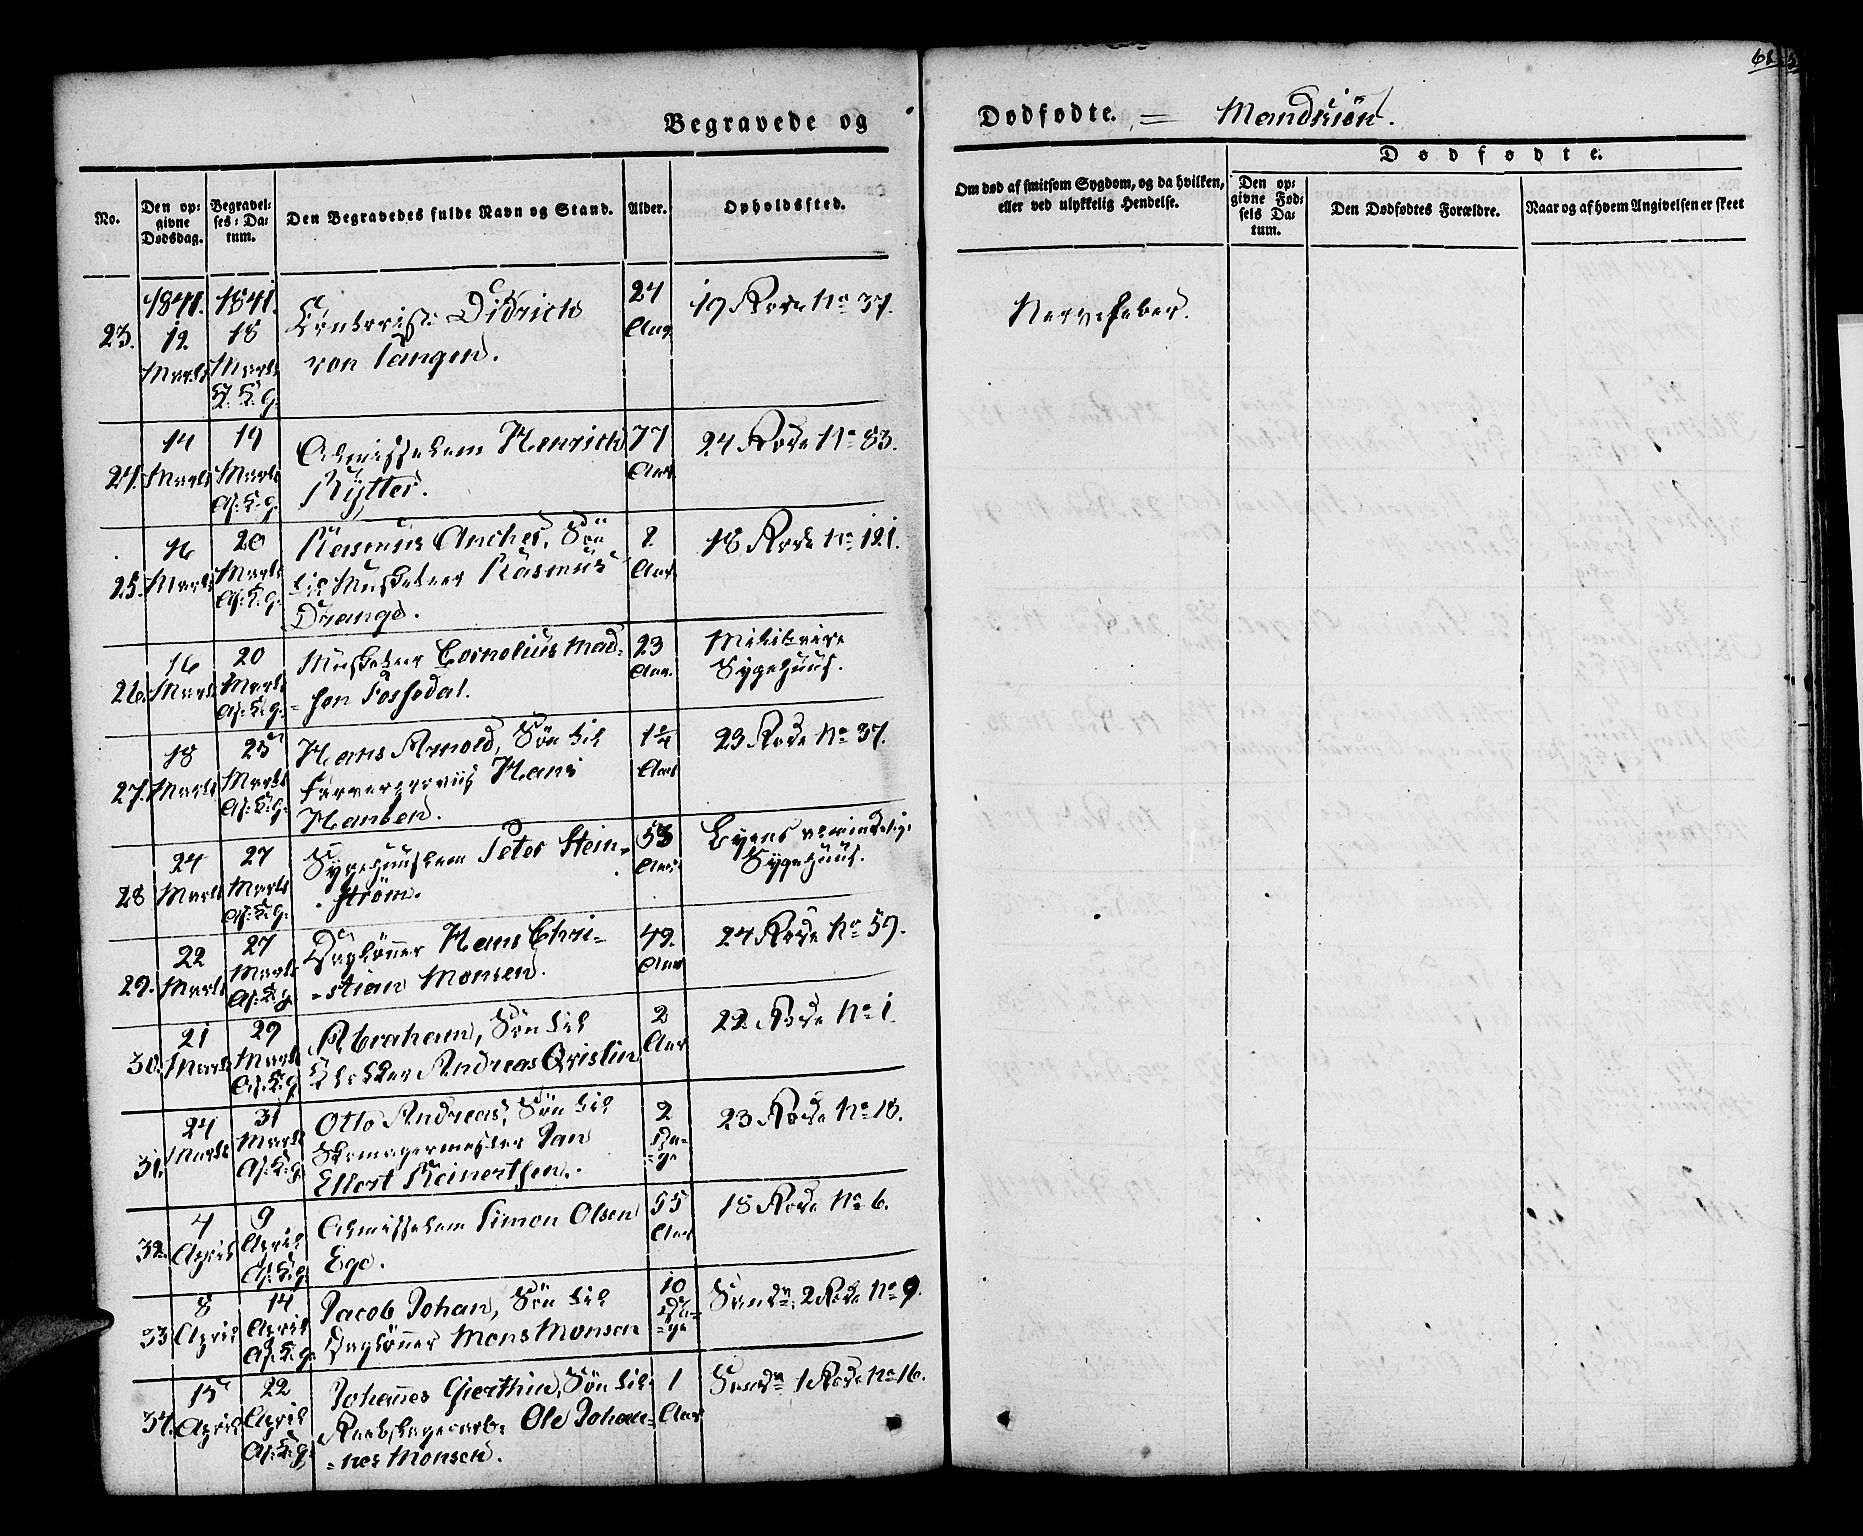 Begravede og
Dødfødte. = Mandkiön.
No.
Den opgivne Dødsdag.
Begravelses-Datum.
Den Begravedes fulde Navn og Stand.
Alder.
Opholdssted.
Om død af smitsom Sygdom, og da hvilken, eller ved ulykkelig Hendelse.
Dødfødte.
Den opgivne Fødsels Datum.
Den Dødfødtes Forældre.
Naar og af hvem Angivelsen er skeet
1841. 1841.
23. 12 Marts 18 Marts Didrich von Tangen. 24 Aar 19 Rode No 37. Nervefeber.
24. 14 Marts 19 Marts Af: K: g. Almisselem Henrich Rÿtter. 77 Aar 24 Rode No 83.
25. 16 Marts 20 Marts Af: K: g. Rasmus Ancher, Søn
til Musketeer Rasmus
Drange. 2 Aar 18 Rode No 121.
26. 16 Marts 20 Marts Af: K: g. Musketeer Cornelius Mad-
sen Fossedal. 23 Aar. Militaire
Sygehuus.
27. 18 Marts 25 Marts Af: K: g. Hans Arnold, Søn til
Hans
Hansen. 1 1/4 Aar 23 Rode No 37.
28 24 Marts 27 Marts Af: K: g. Sygehuuslem Peter Stein-
ström. 53 Aar Byens
Sygehuus.
29. 22 Marts 27 Marts Af: K: g. Daglønner Hans Chri-
-stian Monsen. 49 Aar 24 Rode No 59.
30. 21 Marts 29 Marts Af: K: g. Abraham, Søn til
Klokker Andreas Qvislin 2 Aar 22 Rode No 1
31. 24 Marts 31 Marts Af: K: g. Otto Andreas, Søn til
Skomagermester Jan
Ellert Reinertsen. 2 Dage 23 Rode No 18.
32. 4 April 9 April Af: K: g. Almisselem Simon Olsen
Ege. 55 Aar 18 Rode No 6.
33 8 April 14 April Af: K: g. Jacob Johan, Søn til
Daglønner Mons Monsen 10 Dage Sandv: 2 Rode No 9.
34. 15 April 22 April Af: K: g. Johannes Gjerthin, Søn til
Ole Johan-
=nes Monsen. 1 Aar Sandv 1 Rode No 16.